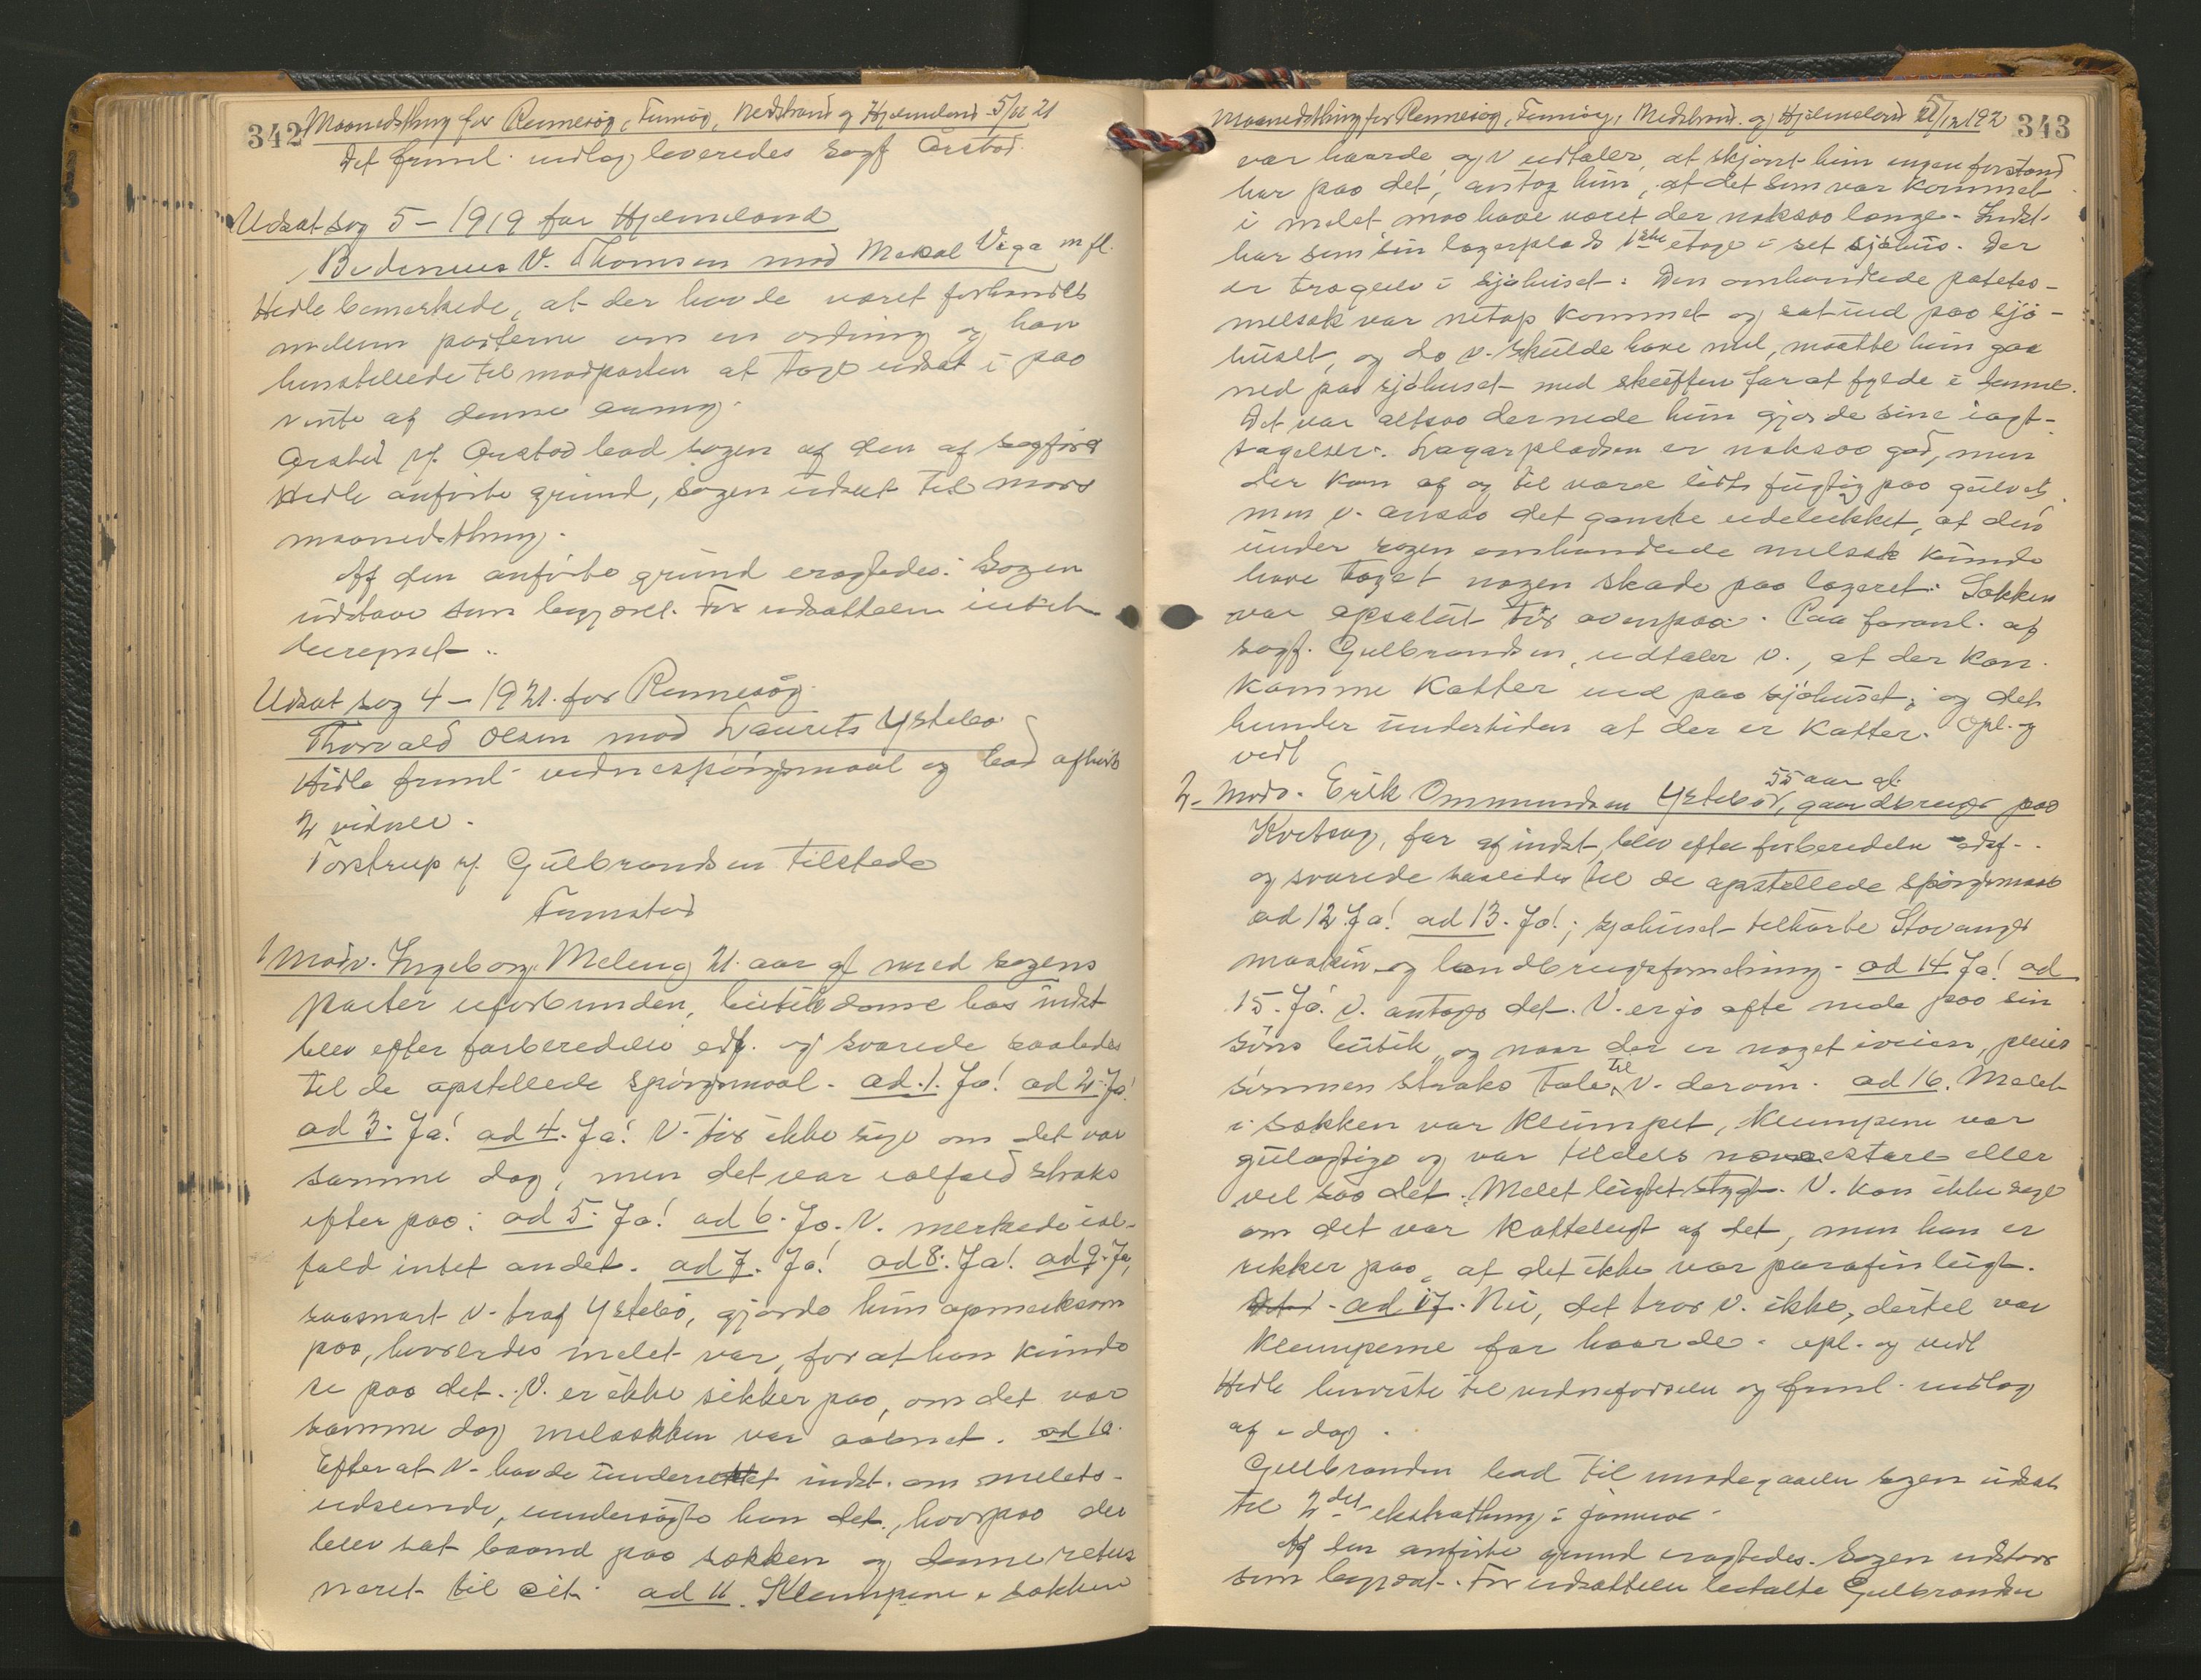 342 Maanedsthing for Rennesøy, Finnøy, Nedstrand og Hjelmeland 5/12 21
Det freml. indlæg leveredes sagfØrstad.
Udsat sag 5 – 1919 for Hjelmeland
V. Thomsen mod Mikal Viga m fl.
Hidle bemerkede, at der havde været forhandlet
mellem parterne om en ordning og han
henstillede til modparten at tage udsat i paa
vente af denne
Ørstad lod sagen af den af sagfører
Hidle anførte grund, sagen udsat til mars
maanedsthing.
Af den anførte grund eragtedes: Sagen
udstaar som begjæret. For udsættelsen intet
beregnet.
Udsat sag 4 – 1921 for Rennesøy
Thorvald Olsen mod Laurits Ystebø
Hidle fremL. vidnespørgsmaal og bad afhørt
2 vidner.
Torstrup f. Gulbrandsen tilstede
Fremstod
1 Modv. Ingeborg Meling 21 aar gl med sagens
parter uforbunden, butikdame hos indst
blev efter forberedelse edf. og svarede saaledes
til de opstillede spørgsmaal. ad. 1. Ja! ad 2. Ja!
ad 3. Ja! ad 4. Ja! V. tør ikke sige om det var
samme dag, men det var ialfald straks
efter paa. ad 5. Ja! ad 6. Ja. V. merkede ial-
fald intet andet. ad 7. Ja! ad 8. Ja! ad 9. Ja,
saasnart V. traf Ystebø, gjorde hun opmerksom
paa, hvorledes melet var, for at han kunde
se paa det. V. er ikke sikker paa, om det var
samme dag melsækken var aabnet. ad 10.
Efter at V. havde underrettet indst. om melets
udseende, undersøgte han det, hvorpaa der
blev sat baand paa sækken og denne retur
neret til cit. ad 11. Klumpene i sækken
Maanedsthing for Rennesøy, Finnøy, Nedstrand og Hjelmeland 5/12 192 343
var haarde, og V udtaler, at skjønt hun ingen forstand
har paa det, antog hun, at det som var kommet
i melet maa have været der noksaa længe. Indst.
har som sin lagerplads 1ste etage i set sjøhus. Der
er trægulv i sjøhuset. Den omhandlede potetes-
melsæk var netop kommet og sat ind paa sjø-
huset, og da V. skulde have mel, maatte hun gaa
ned paa sjøhuset med skuffen for at fylde i denne.
Det var altsaa dernede hun gjorde sine iagt-
tagelser. Lagerpladsen er noksaa god, men
der kan af og til være lidt fugtig paa gulvet,
men V. ansaa det ganske udelukket, at den
under sagen omhandlede melsæk kunde
have taget nogen skade paa lageret. Sækken
var apsolut tør ovenpaa. Paa foranl. af
sagf. Gulbrandsen, udtaler V., at der kan
komme katter ind paa sjøhuset, og det
hender undertiden at der er katter. Opl. og
vedt
2. Modv. Erik Ommundsen Ystebø, 55 aar gl. gaardbruger paa
Kvitsøy, far af indst, blev efter forberedelse edf.
og svarede saaledes til de opstillede spørgsmaal
ad 12 Ja! ad 13. Ja!; sjøhuset tilhørte Stavanger
maskin og landbrugsforretning. ad 14 Ja! ad
15. Ja! V. antager det. V. er jo ofte nede paa sin
søns butik, og naar der er noget iveien, pleier
sønnen straks tale til V. derom. ad 16. Melet
i sækken var klumpet, klumpene var
gulagtige og var tildels større eller
vel saa det. Melet lugtet stygt. V. kan ikke sige
om det var kattelugt af det, men han er
sikker paa, at det ikke var parafinlugt.
ad 17. Nei, det tror V. ikke, dertil var
klumperne for haarde. opl. og vedt
Hidle henviste til vidneførselen og fremL. indlæg
af i dag.
Gulbrandsen bad til imødegaaelse sagen udsat
til 2det ekstrathing i januar.
Af den anførte grund eragtedes. Sagen udstaar
som begjæret. For udsættelsen betalte Gulbrandsen